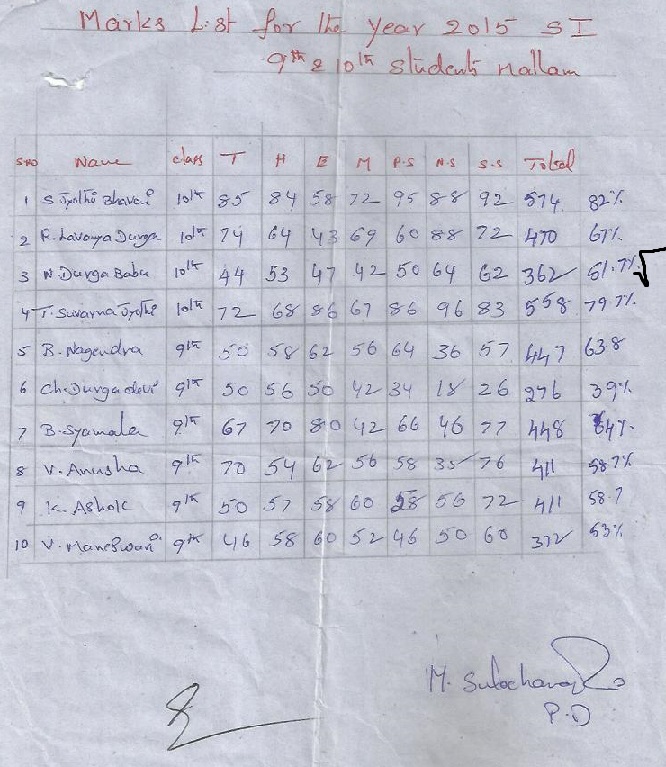 Marks List for the year 2015 S I
9th & 10th students Mallam
S.NO Name class T H E M P.S N.S S.S Total
1 S. Jyothi Bhavani 10th 85 84 58 72 95 88 92 574 82%
2 K. Lavanya Durga 10th 74 64 43 69 60 88 72 470 67%
3 N Durga Babu 10th 44 53 47 42 50 64 62 362 51.7%
4 T. Swarna Jyothi 10th 72 68 86 67 86 96 83 558 79.7%
5 B. Nagendra 9th 50 58 62 56 64 36 57 447 638
6 Ch. Durga devi 9th 50 56 50 42 34 18 26 276 39%
7 B. Syamala 9th 67 70 80 42 66 46 77 448 64%
8 V. Anusha 9th 70 54 62 56 58 35 76 411 58.7%
9 K. Ashok 9th 50 57 58 60 58 56 72 411 58.7
10 V. Maneswari 9th 46 58 60 52 46 50 60 372 53%
M. Sulochana
P.D